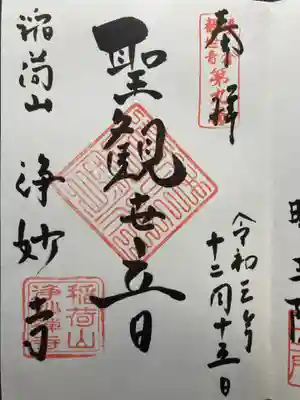 明王院
奉拝
令和三年
十二月十五日
聖観世音
稲荷山 浄妙寺
稲荷山
浄妙禅寺